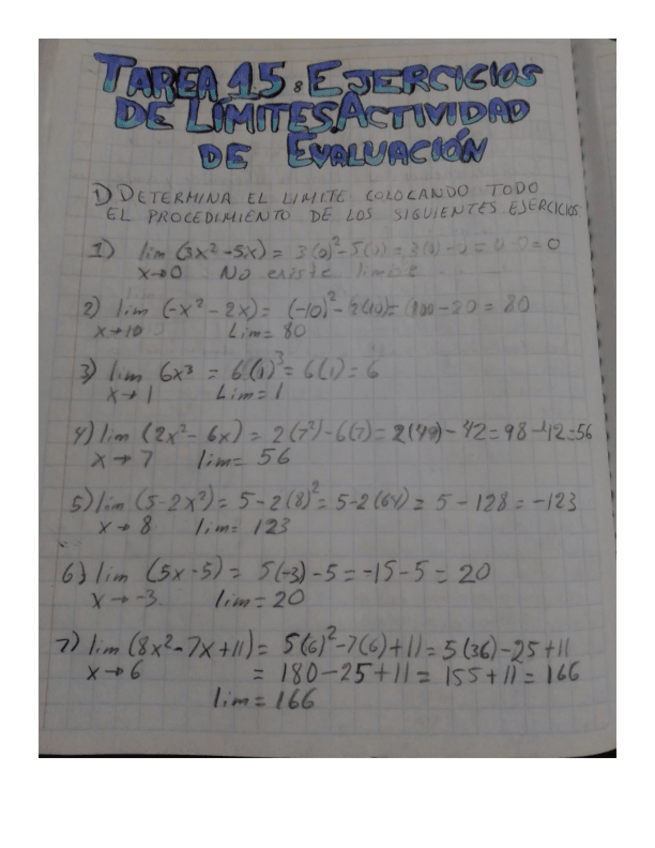 TAREA 15: EJERCICIOS
DE LÍMITES. ACTIVIDAD
DE EVALUACIÓN
1) DETERMINA EL LIMITE COLOCANDO TODO
EL PROCEDIMIENTO DE LOS SIGUIENTES EJERCICIOS
1) lim (3x² -5x) = 3(0)² - 5(0) = 3(0) - 0 = 0 - 0 = 0
x→0 No existe limite
2) lim (-x² - 2x) = (-10)² - 2(10) = 100 - 20 = 80
x→10 Lim = 80
3) lim 6x³ = 6(1)³ = 6(1) = 6
x→1 Lim = 1
4) lim (2x² - 6x) = 2(7²) - 6(7) = 2(49) - 42 = 98 - 42 = 56
x→7 lim = 56
5) lim (5-2x²) = 5 - 2(8)² = 5-2(64) = 5 - 128 = -123
x→8 lim = 123
6) lim (5x-5) = 5(-3) - 5 = -15 - 5 = 20
x→-3 lim = 20
7) lim (8x² - 7x + 11) = 5(6)² - 7(6) + 11 = 5(36) - 25 + 11
x→6 = 180 - 25 + 11 = 155 + 11 = 166
lim = 166